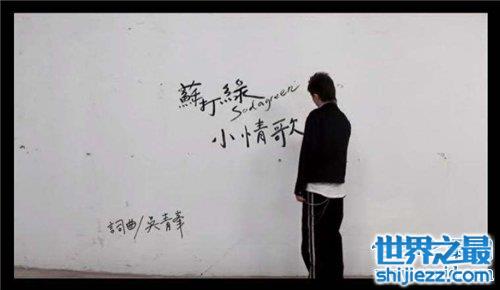 蘇打綠
Sodagreen
小情歌
詞曲/吳青峯
世界之最
shijiezz.com